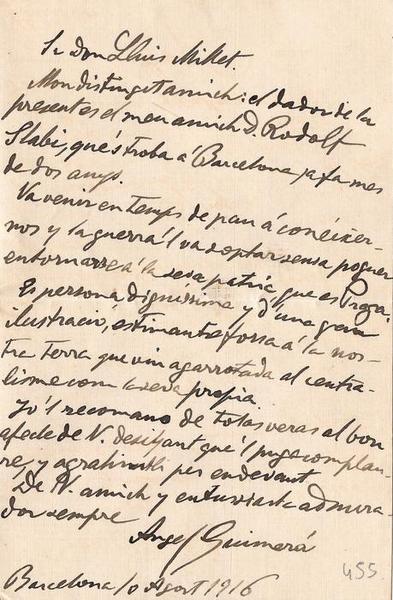 Sr. Don Lluis Millet.
Mon distingit amich: el dador de la
present es el meu amich D. Rodolf
Slabi, qu'es troba á Barcelona ja fa mes
de dos anys.
Va venir en temps de pau á conéixer-
nos y la guerra 'l va sense poguer
entornarse á la seva patria que es Praga.
Es persona digníssima y d'una gran
ilustració, estimantse forsa á la nos-
tra terra que viu agarrotada al centra-
lisme com la seva propia.
Jo 'l recomano de totas veras al bon
afecte de V. desitjant qué 'l puga complau-
re, y per endevant
De V. amich y entussiasta admira-
dor sempre
Angel Guimerá
Barcelona 10 Agost 1916
455